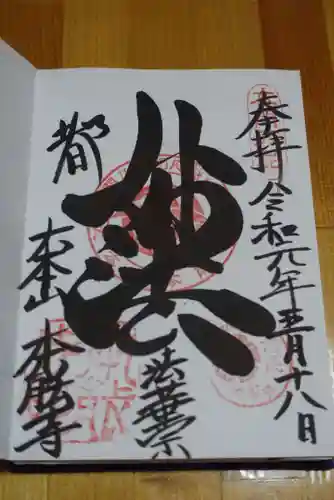 奉拝
令和元年五月十八日
妙法
法華宗
都
大本山
本能寺